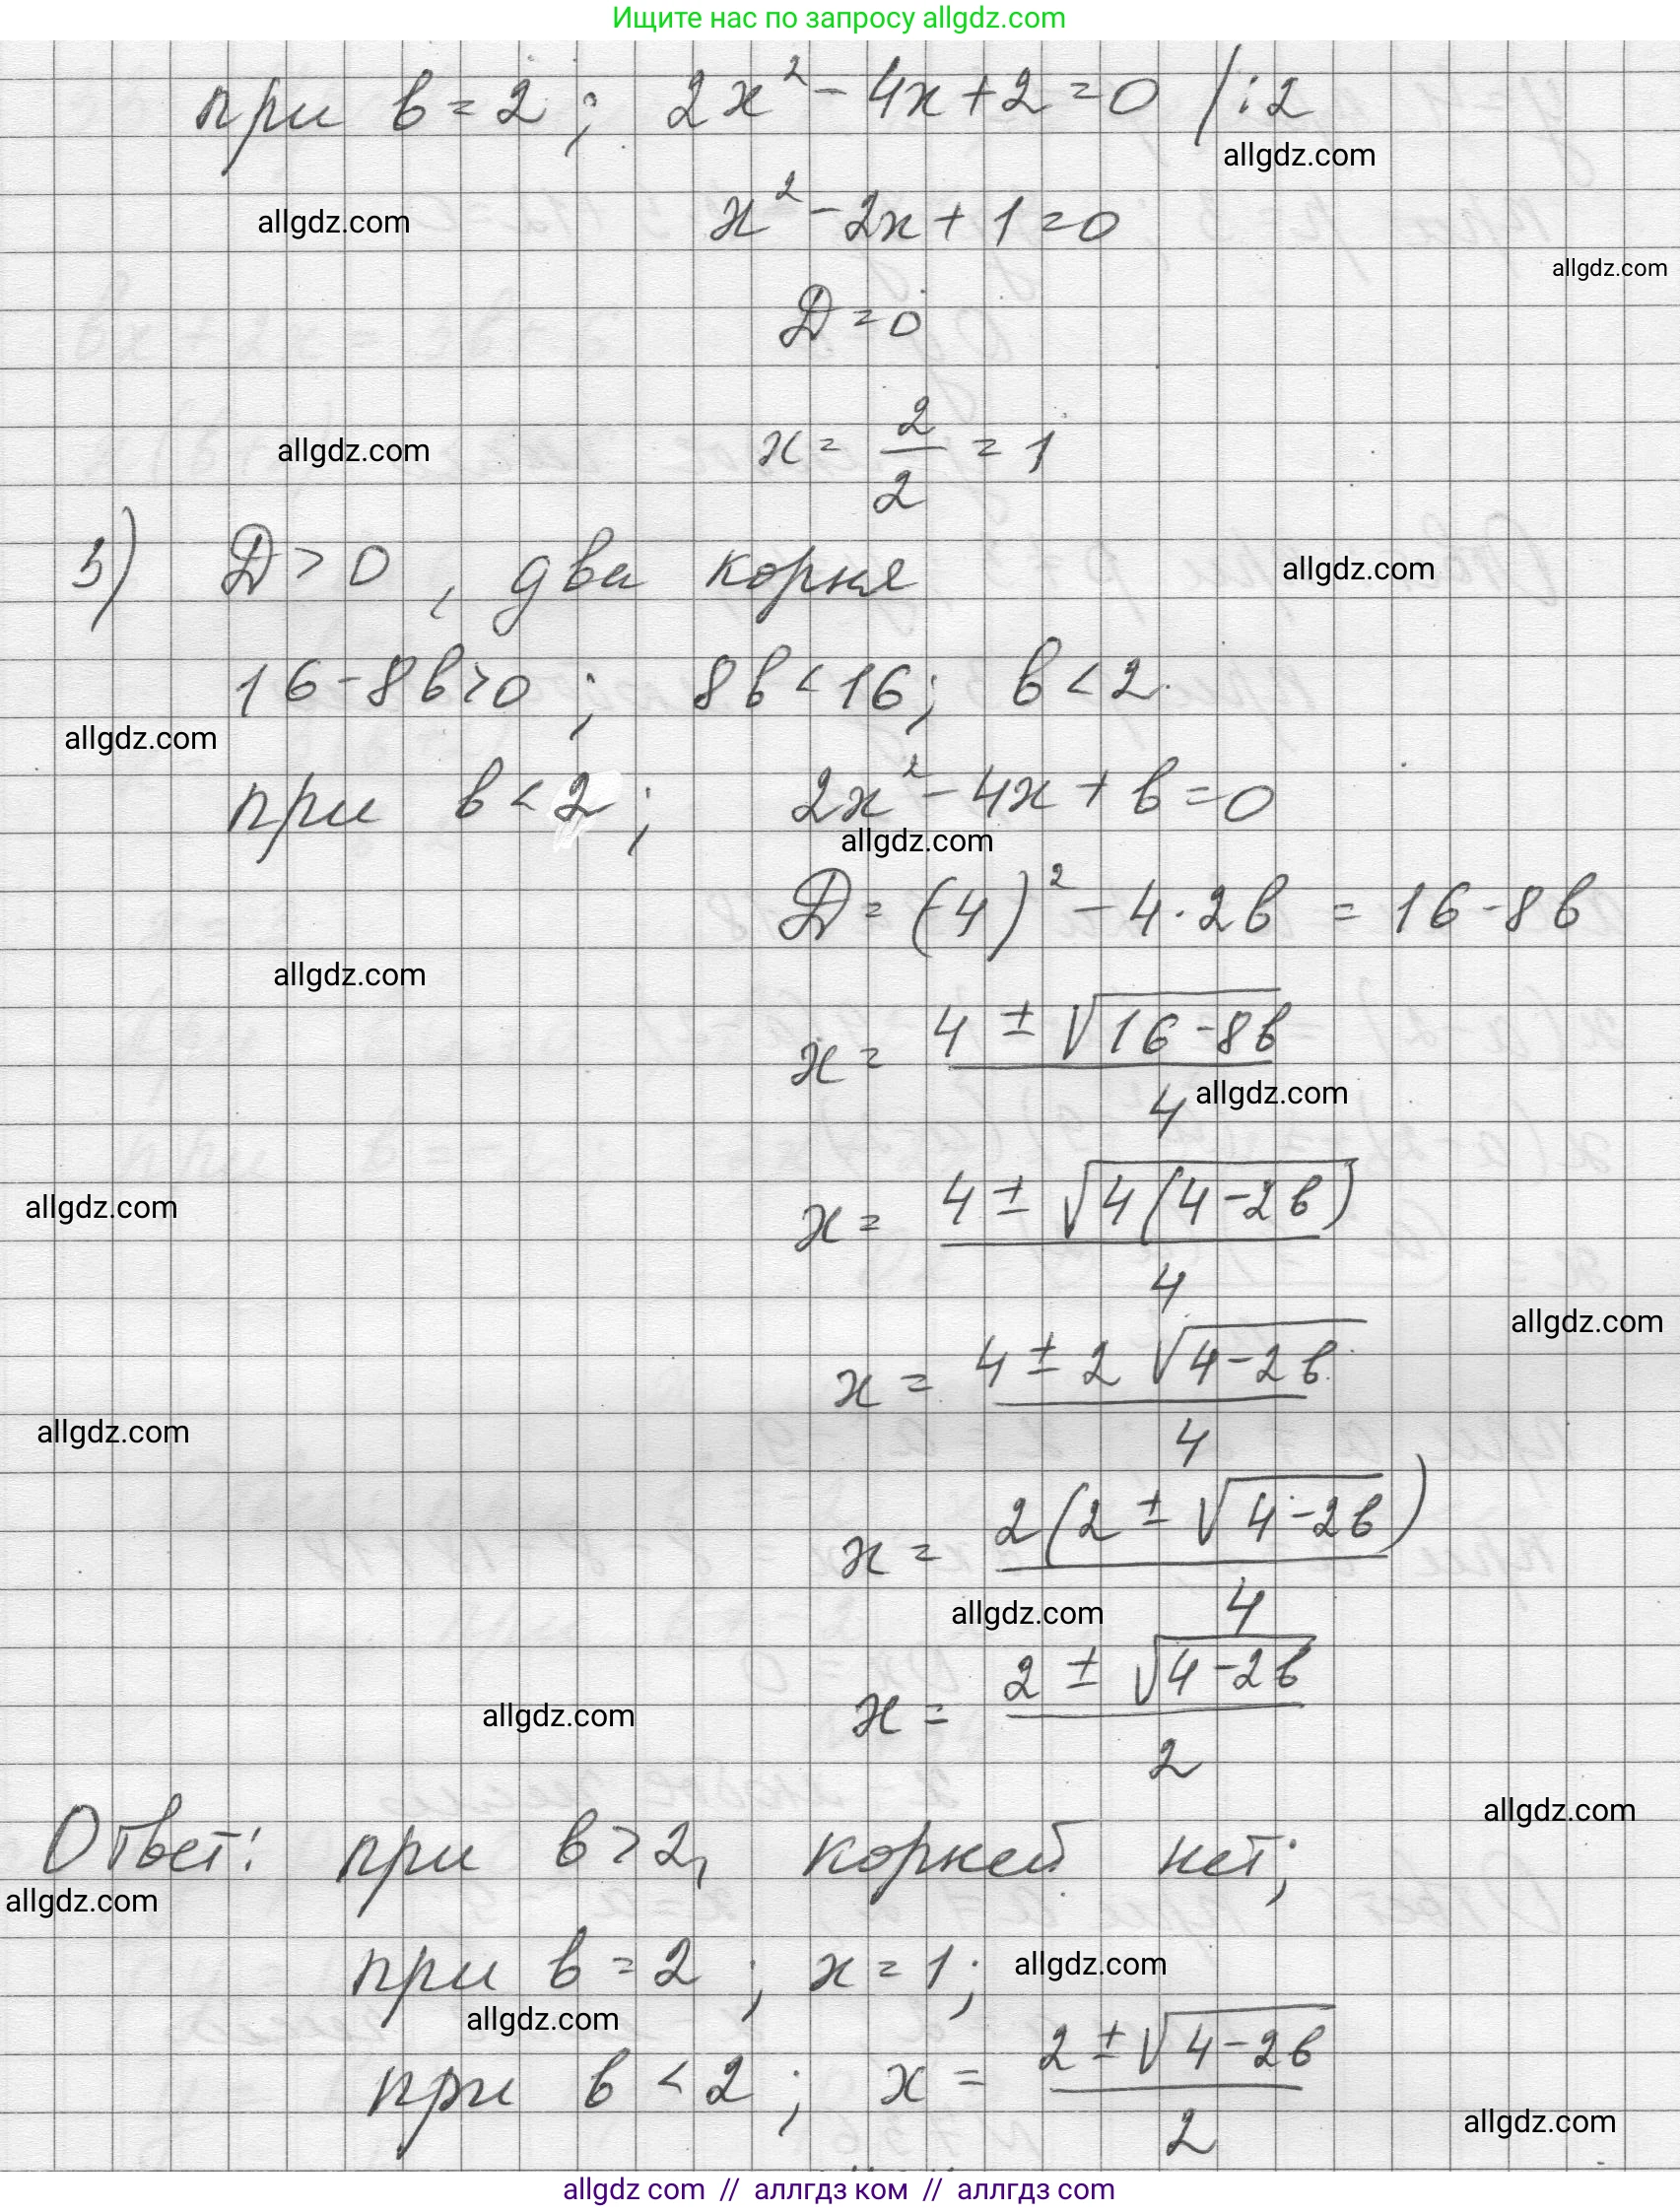 Ищите нас по запросу allgdz.com
при b = 2; 2x² - 4x + 2 = 0 /:2
allgdz.com
allgdz.com
x² - 2x + 1 = 0
allgdz.com
D = 0
x = 2/2 = 1
allgdz.com
3) D > 0, два корня
allgdz.com
16 - 8b > 0; 8b < 16; b < 2.
allgdz.com
при b < 2; 2x² - 4x + b = 0
allgdz.com
D = (-4)² - 4·2b = 16 - 8b
allgdz.com
x = 4 ± √16 - 8b / 4
allgdz.com
x = 4 ± √4(4 - 2b) / 4
allgdz.com
allgdz.com
x = 4 ± 2√4 - 2b / 4
allgdz.com
x = 2(2 ± √4 - 2b) / 4
allgdz.com
x = 2 ± √4 - 2b / 2
allgdz.com
allgdz.com
Ответ: при b > 2, корней нет;
allgdz.com
при b = 2; x = 1;
allgdz.com
allgdz.com
при b < 2; x = 2 ± √4 - 2b / 2
allgdz.com
allgdz.com // аллгдз ком // аллгдз.com